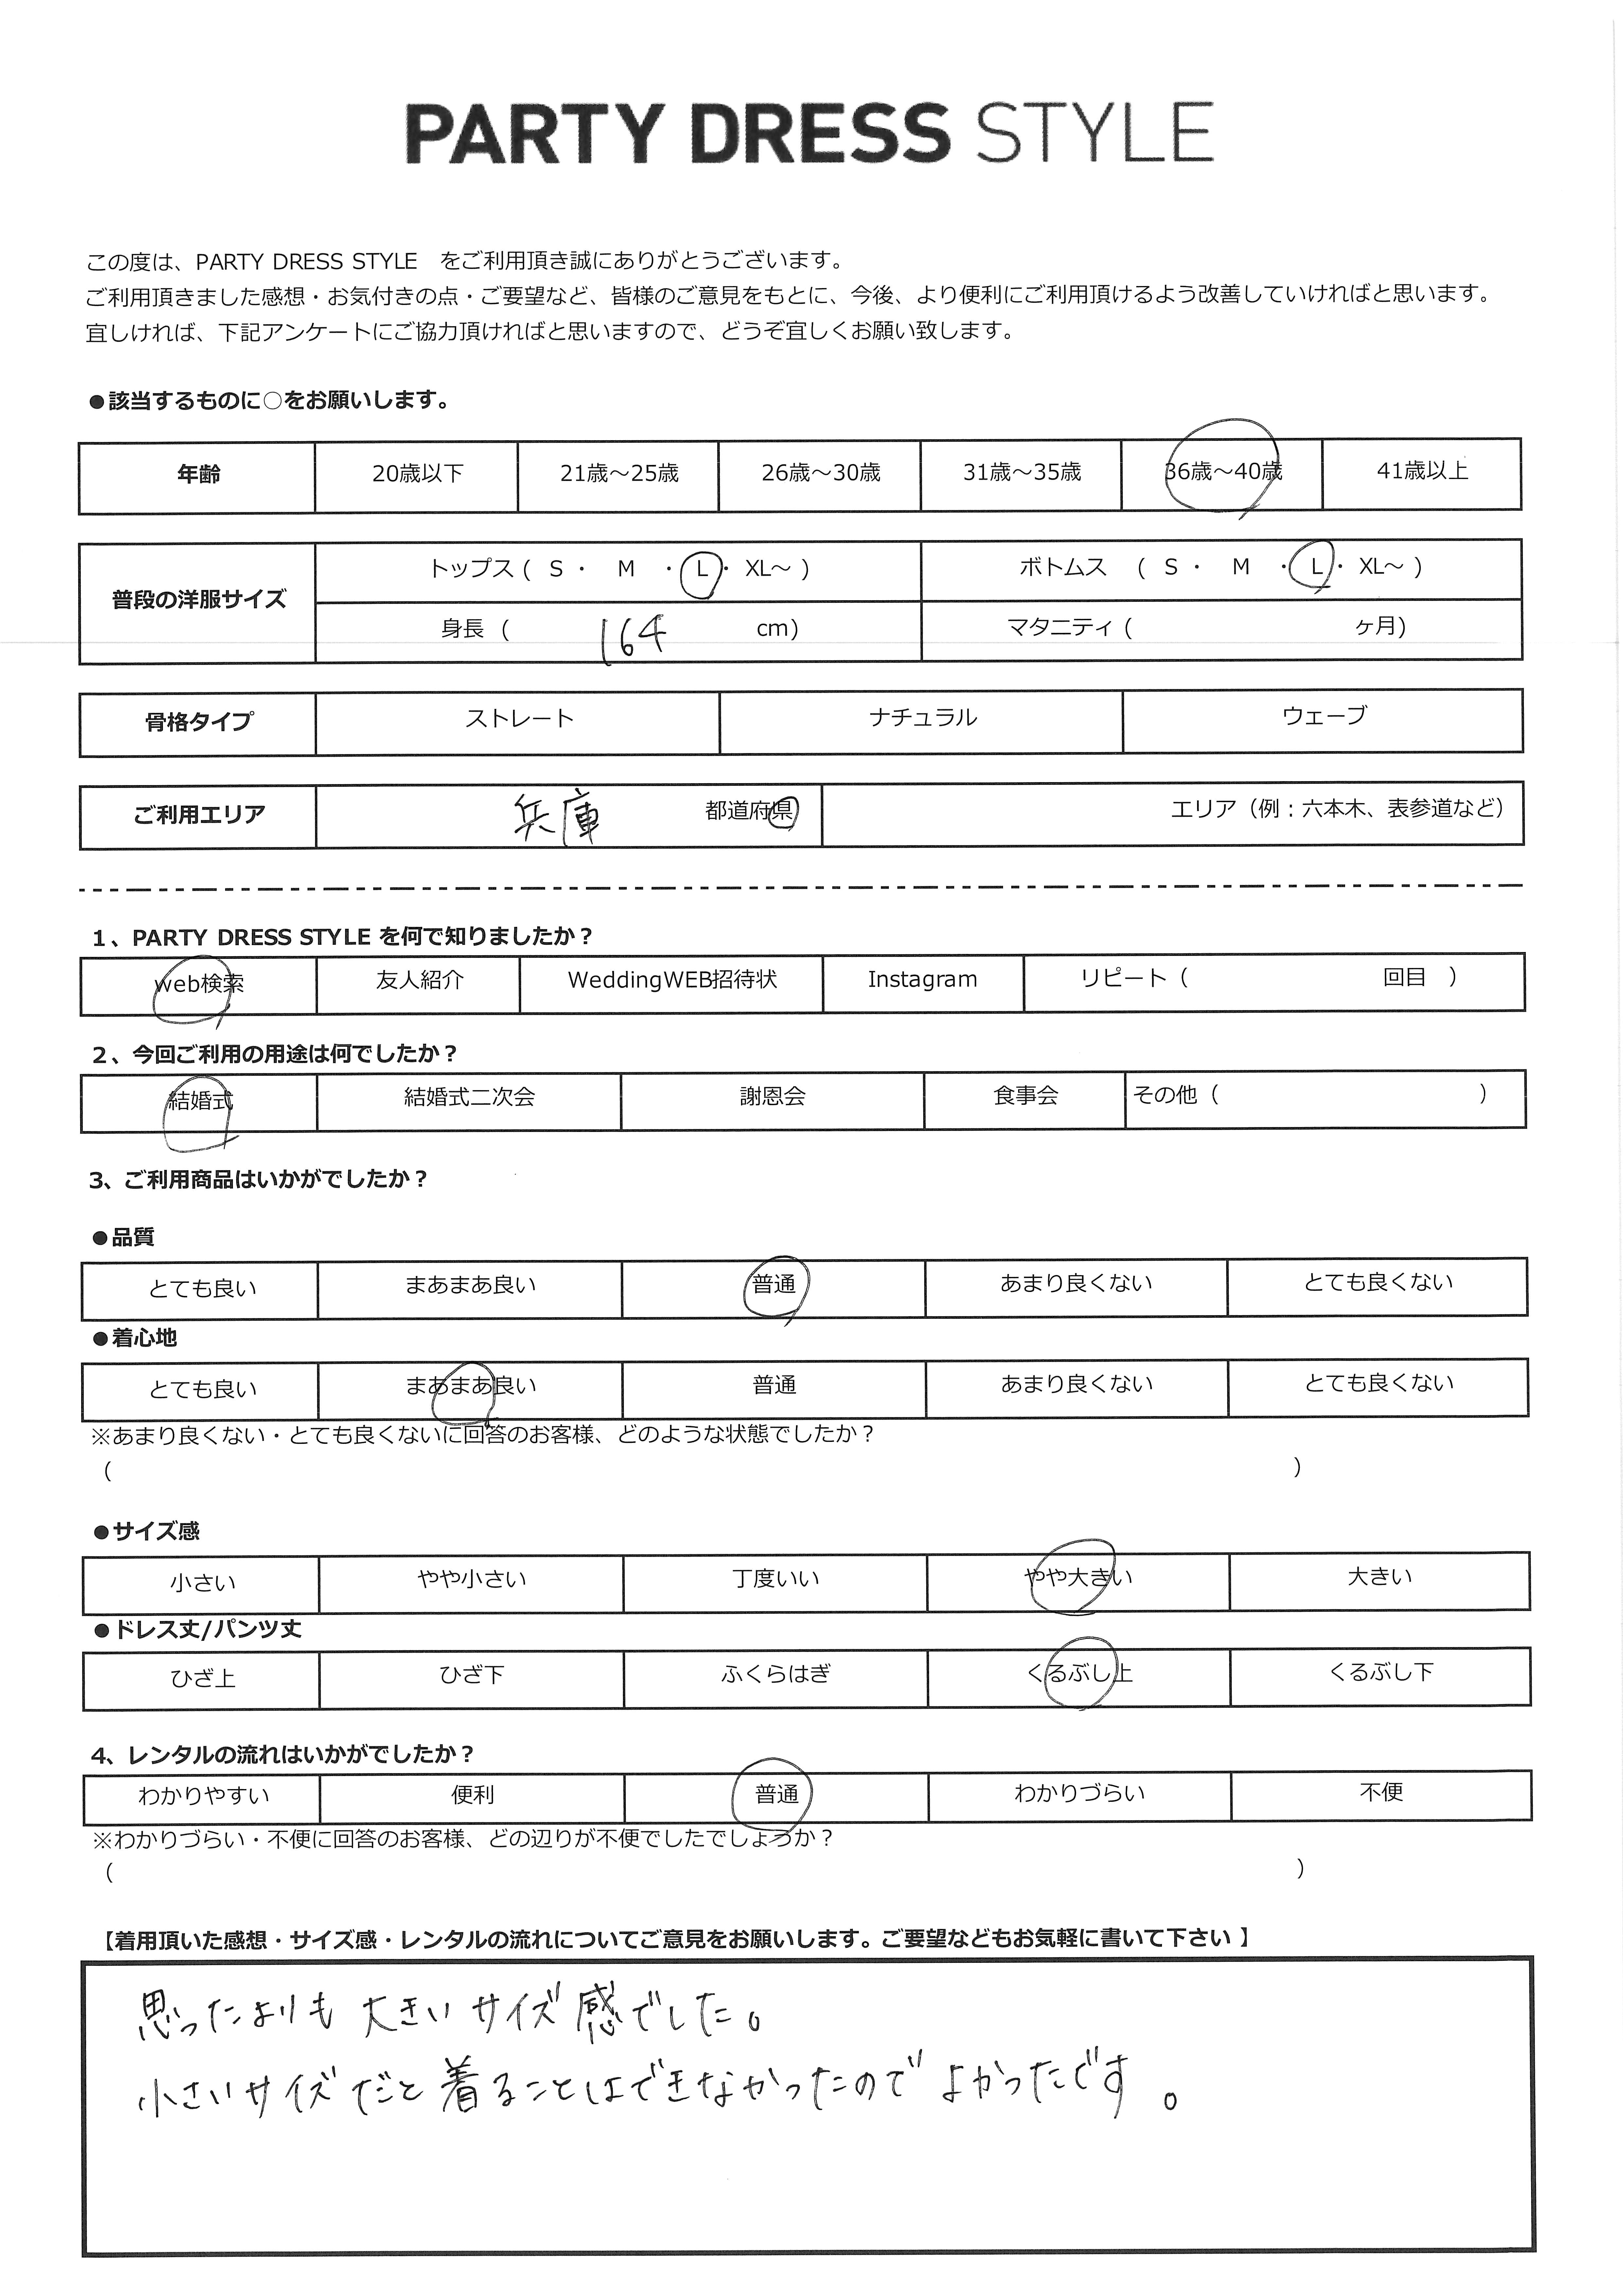 PARTY DRESS STYLE
この度は、PARTY DRESS STYLE をご利用頂き誠にありがとうございます。
ご利用頂きました感想・お気付きの点・ご要望など、皆様のご意見をもとに、今後、より便利にご利用頂けるよう改善していければと思います。
宜しければ、下記アンケートにご協力頂ければと思いますので、どうぞ宜しくお願い致します。
●該当するものに○をお願いします。
年齢 20歳以下 21歳～25歳 26歳～30歳 31歳～35歳 36歳～40歳 41歳以上
普段の洋服サイズ トップス ( S ・ M ・ L ・ XL～ ) ボトムス ( S ・ M ・ L ・ XL～ )
身長 ( 164 cm) マタニティ ( ヶ月)
骨格タイプ ストレート ナチュラル ウェーブ
ご利用エリア 兵庫 都道府県 エリア（例：六本木、表参道など）
1、PARTY DRESS STYLE を何で知りましたか？
web検索 友人紹介 WeddingWEB招待状 Instagram リピート（ 回目 ）
2、今回ご利用の用途は何でしたか？
結婚式 結婚式二次会 謝恩会 食事会 その他（ ）
3、ご利用商品はいかがでしたか？
●品質
とても良い まあまあ良い 普通 あまり良くない とても良くない
●着心地
とても良い まあまあ良い 普通 あまり良くない とても良くない
※あまり良くない・とても良くないに回答のお客様、どのような状態でしたか？
（ ）
●サイズ感
小さい やや小さい 丁度いい やや大きい 大きい
●ドレス丈/パンツ丈
ひざ上 ひざ下 ふくらはぎ くるぶし上 くるぶし下
4、レンタルの流れはいかがでしたか？
わかりやすい 便利 普通 わかりづらい 不便
※わかりづらい・不便に回答のお客様、どの辺りが不便でしたでしょうか？
（ ）
【着用頂いた感想・サイズ感・レンタルの流れについてご意見をお願いします。ご要望などもお気軽に書いて下さい 】
思ったよりも 大きい サイズ 感でした。
小さい サイズ だと 着ることはできなかったので よかったです。